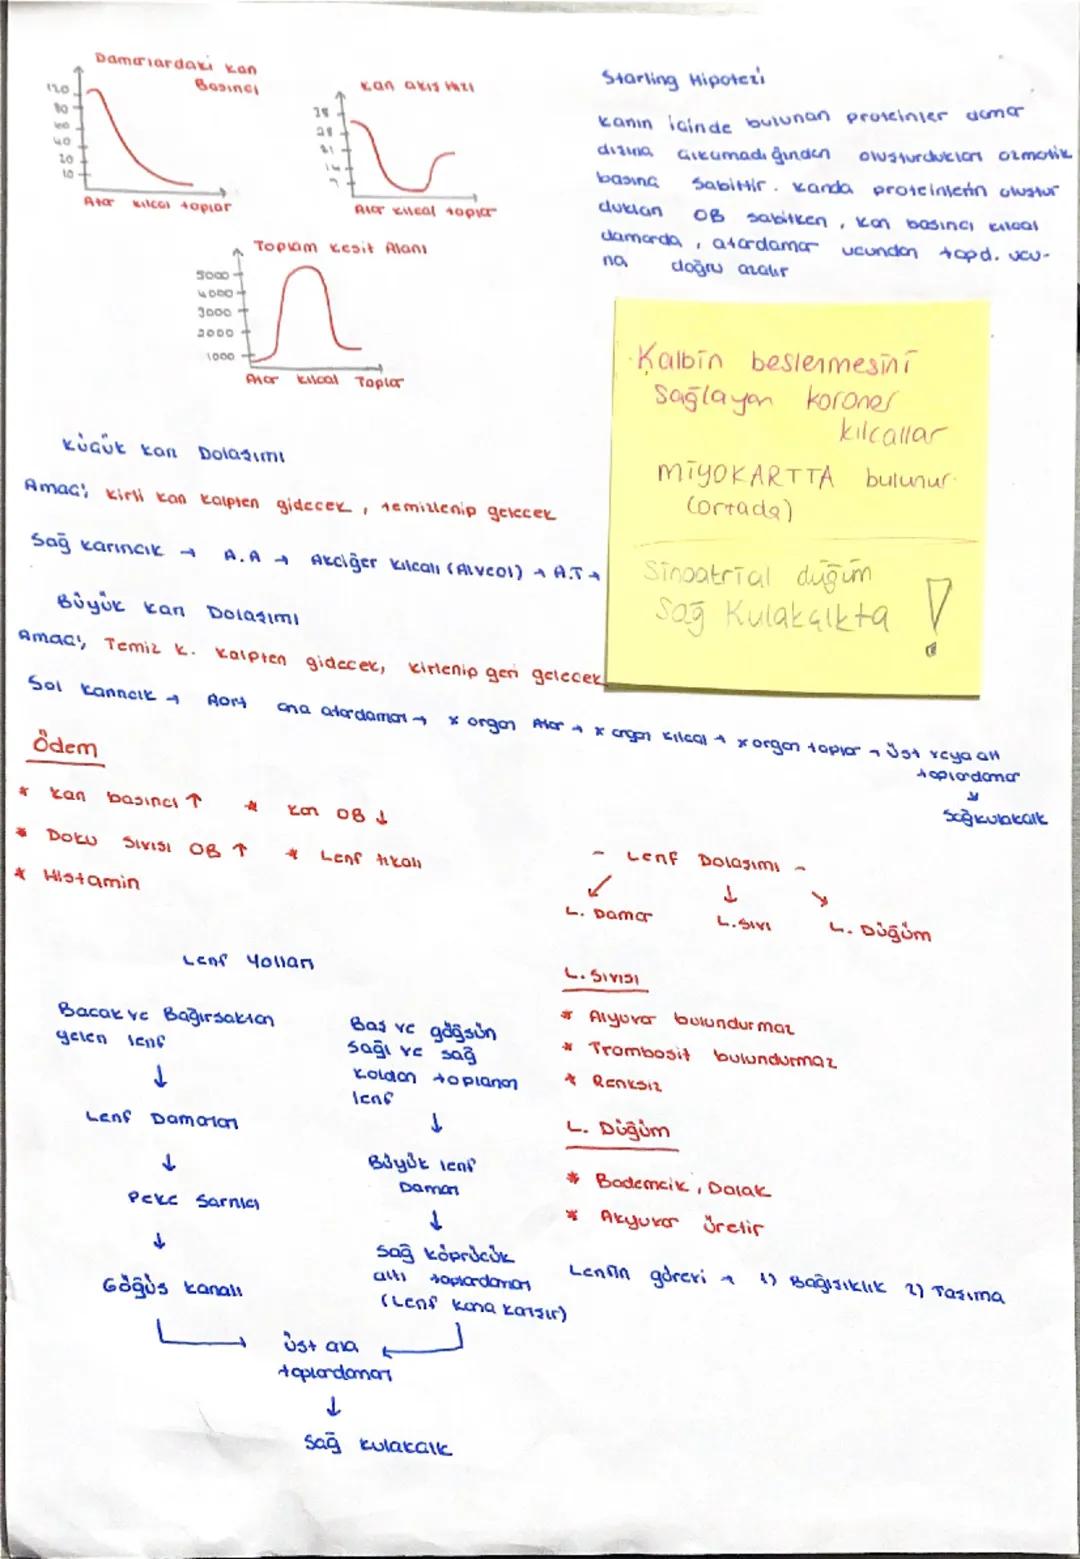 Damarlardaki kan
Basıncı
120
80
60
40
20
10
Atar kılcal toplar
Kan akış Hızı
35
28
21
14
7
Atar kılcal toplar
Toplam Kesit Alanı
5000
4000
3000
2000
1000
Atar kılcal Toplar
Starling Hipotezi
Kanın içinde bulunan proteinler damar
dışına çıkamadığından oluşturdukları ozmotik
basınç sabittir. Kanda proteinlerin oluştur
dukları OB sabitken, kan basıncı kılcal
damarda, atardamar ucundan topd. ucu-
na doğru azalır
Kalbin beslenmesini
sağlayan koroner
kılcallar
MİYOKARTTA bulunur.
(ortada)
Sinoatrial düğüm
Sağ Kulakçıkta !
Küçük Kan Dolaşımı
Amaç; kirli kan kalpten gidecek, temizlenip gelecek
Sağ karıncık → A.A → Akciğer kılcalı (Alveol) → A.T →
Büyük Kan Dolaşımı
Amaç; Temiz k. kalpten gidecek, kirlenip geri gelecek
Sol karıncık → Aort ana atardamarı → x organ Atar → x organ kılcal → x organ toplar → Üst veya alt
toplardamar
↓
Sağ kulakçık
Ödem
* Kan basıncı ↑ * Kan OB ↓
* Doku Sıvısı OB ↑ * Lenf tıkalı
* Histamin
- Lenf Dolaşımı -
↙ ↓ ↘
L. Damar L. Sıvı L. Düğüm
L. Sıvısı
* Alyuvar bulundurmaz
* Trombosit bulundurmaz
* Renksiz
L. Düğüm
* Bademcik, Dalak
* Akyuvar üretir
Lenfin görevi → 1) Bağışıklık 2) Taşıma
Lenf Yolları
Bacak ve Bağırsaktan
gelen lenf
↓
Lenf Damarları
↓
Peke Sarnıcı
↓
Göğüs kanalı
Baş ve göğsün
sağı ve sağ
koldan toplanan
lenf
↓
Büyük lenf
Damarı
↓
Sağ köprücük
altı toplardamarı
(Lenf kana karışır)
Üst ana
toplardamar
↓
Sağ kulakçık